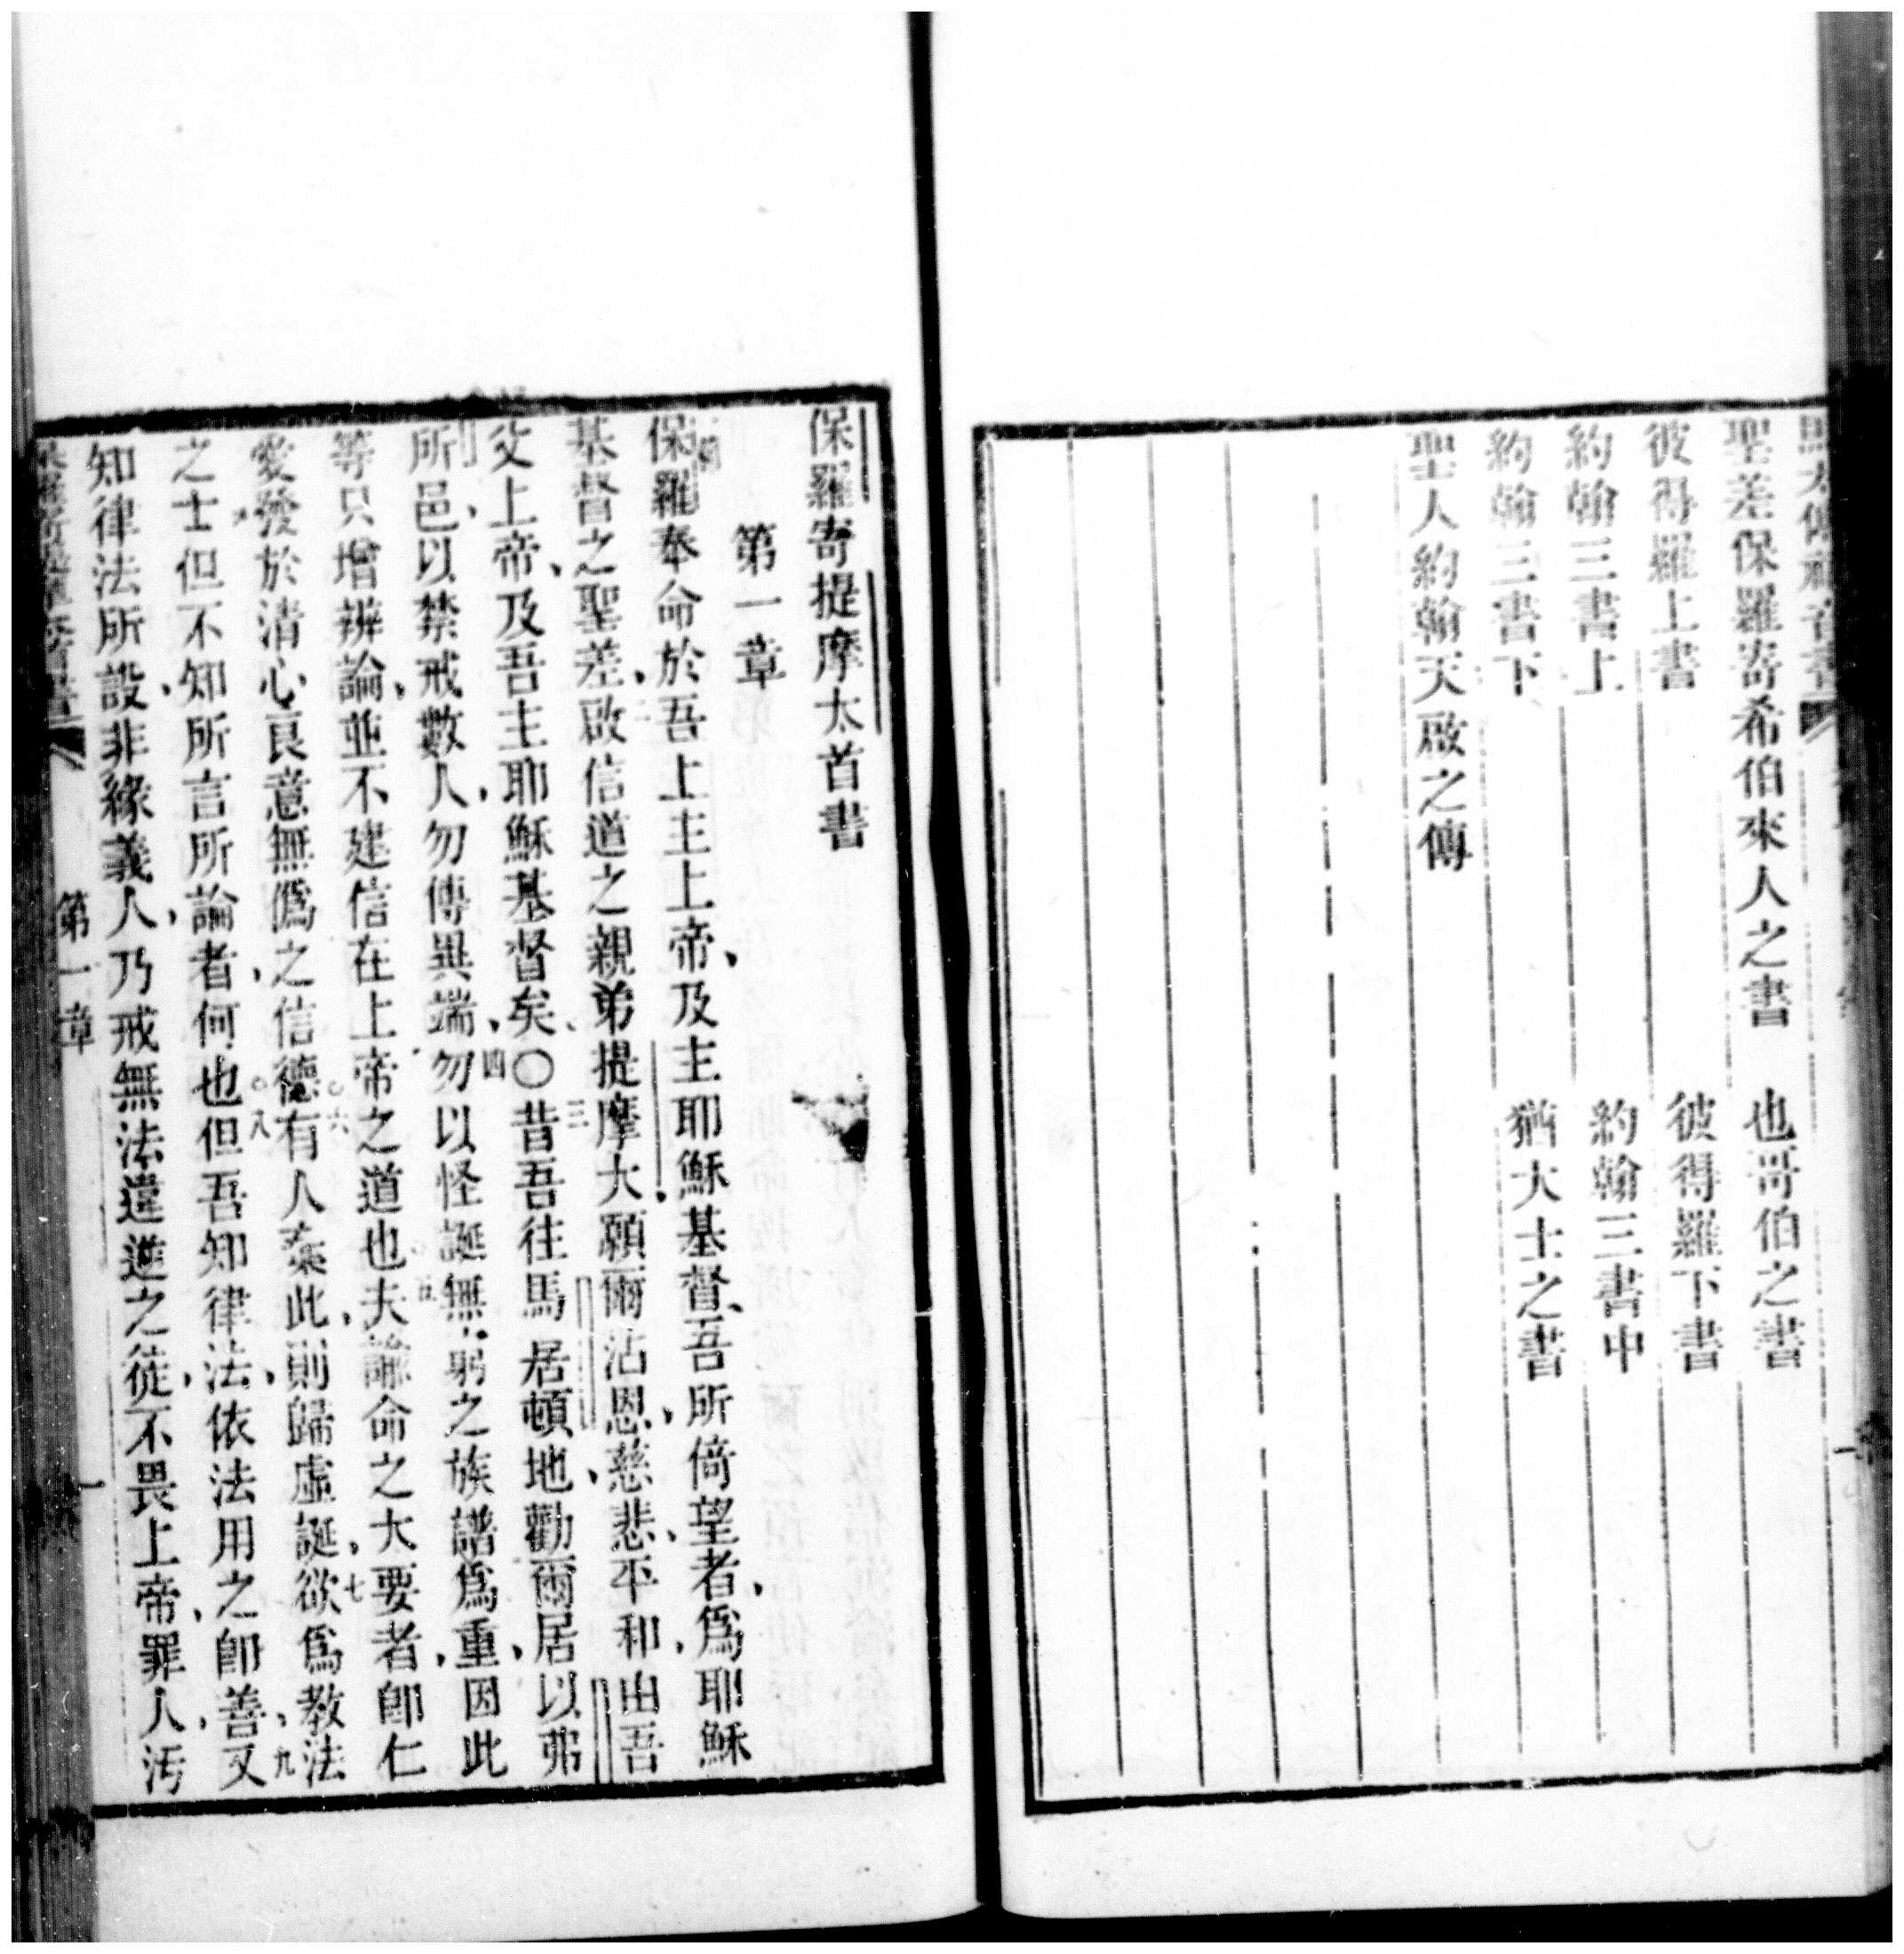 聖差保羅寄希伯來人之書　也哥伯之書
彼得羅上書　彼得羅下書
約翰三書上　約翰三書中
約翰三書下　猶大士之書
聖人約翰天啟之傳
保羅寄提摩太首書
第一章
保羅奉命於吾上主上帝、及主耶穌基督、吾所倚望者、爲耶穌
基督之聖差、二啟信道之親弟提摩大、願爾沾恩、慈悲、平和、由吾
父上帝、及吾主耶穌基督矣、〇三昔吾往馬居頓地、勸爾居以弗
所邑、以禁戒數人、勿傳異端、四勿以怪誕無窮之族譜爲重、因此
等只增辨論、並不建信在上帝之道也五夫諭命之大要者、卽仁
愛發於清心、良意無僞之信德〇六有人棄此、則歸虛誕、七欲爲教法
之士但不知所言所論者、何也〇八但吾知律法、依法用之卽善、九又
知律法所設、非緣義人、乃戒無法違逆之徒、不畏上帝、罪人、汚
第一章
一